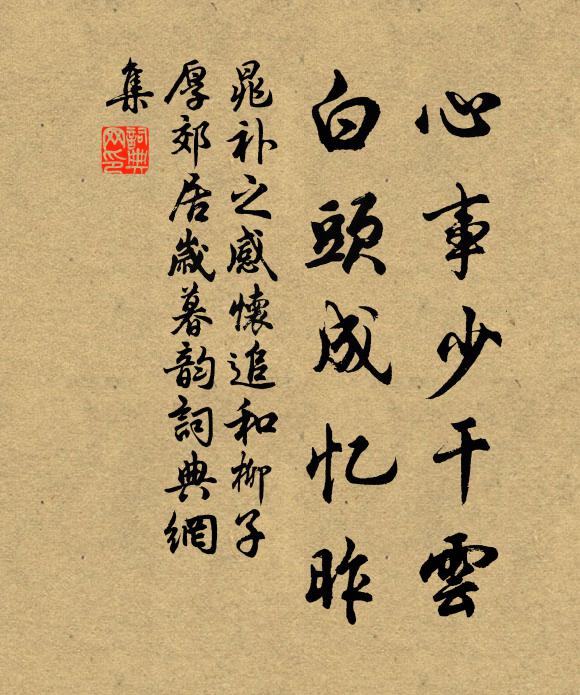 心事少干雲
白頭成忆昨
晁补之感懷追和柳子
厚郊居歲暮韵詞典網
集
詞典
网印